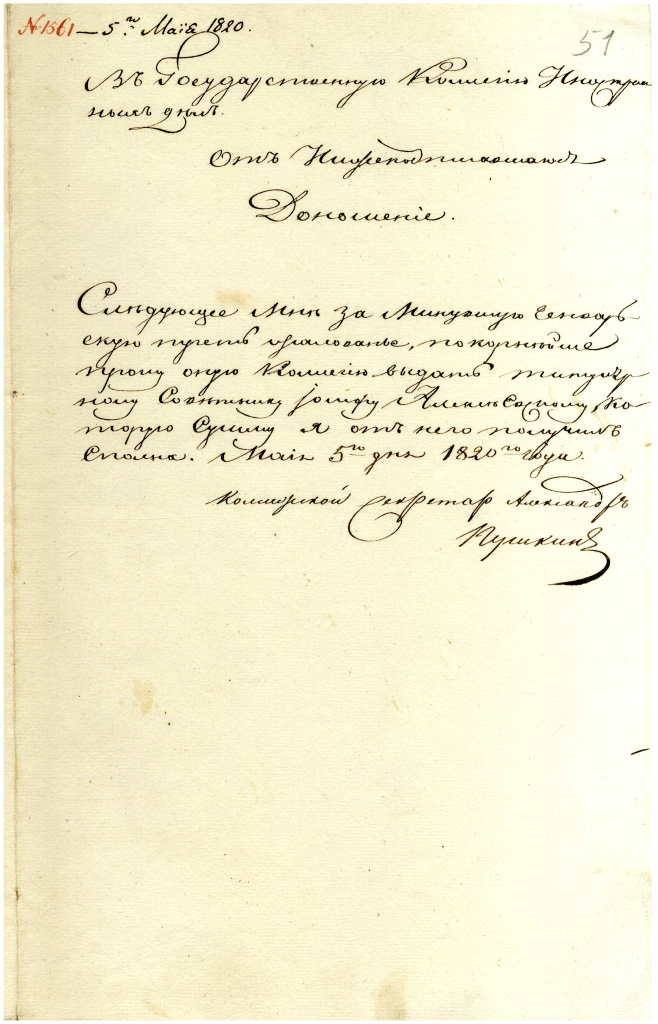 № 1561 — 5го Маїя 1820.
51
Въ Государственную Коллегію Иностран
ныхъ дѣлъ.
Отъ Нижеподписавшагося
Доношеніе.
Слѣдующее мнѣ за минувшую Генварь-
скую треть жалованье, покорнѣйше
прошу оную Коллегію выдать титуляр
ному Совѣтнику
торую Сумму я отъ него получилъ
Сполна. Маія 5го дня 1820го года.
Коллежской Секретарь Александръ
Пушкинъ